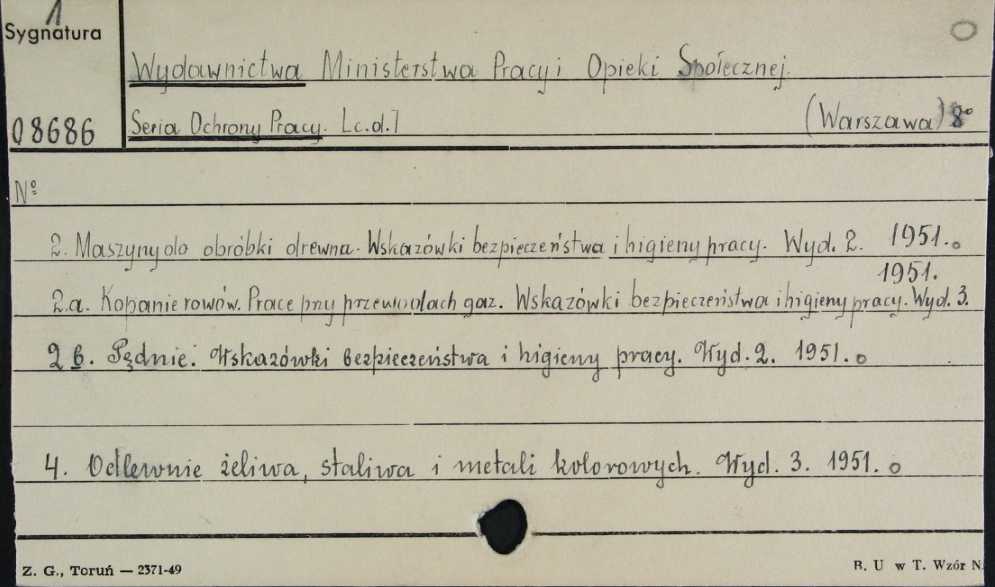 1
Sygnatura
Wydawnictwa Ministerstwa Pracy i Opieki Społecznej.
08686
Seria Ochrony Pracy. [c.d.] (Warszawa) 8°
Nº
2. Maszyny do obróbki drewna. Wskazówki bezpieczeństwa i higieny pracy. Wyd. 2. 1951.
1951.
2.a. Kopanie rowów. Prace przy przewodach gaz. Wskazówki bezpieczeństwa i higieny pracy. Wyd. 3.
2 b. Pędnie. Wskazówki bezpieczeństwa i higieny pracy. Wyd. 2. 1951.
4. Odlewnie żeliwa, staliwa i metali kolorowych. Wyd. 3. 1951.
Z. G., Toruń — 2371-49
B. U w T. Wzór N